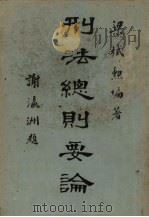 梁恒勲編著
刑法總則要論
謝瀛洲題